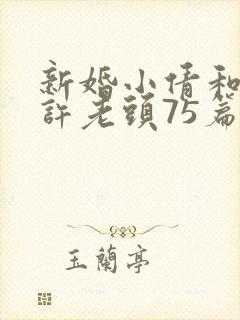 新婚小倩和
許老頭75篇
玉蘭亭